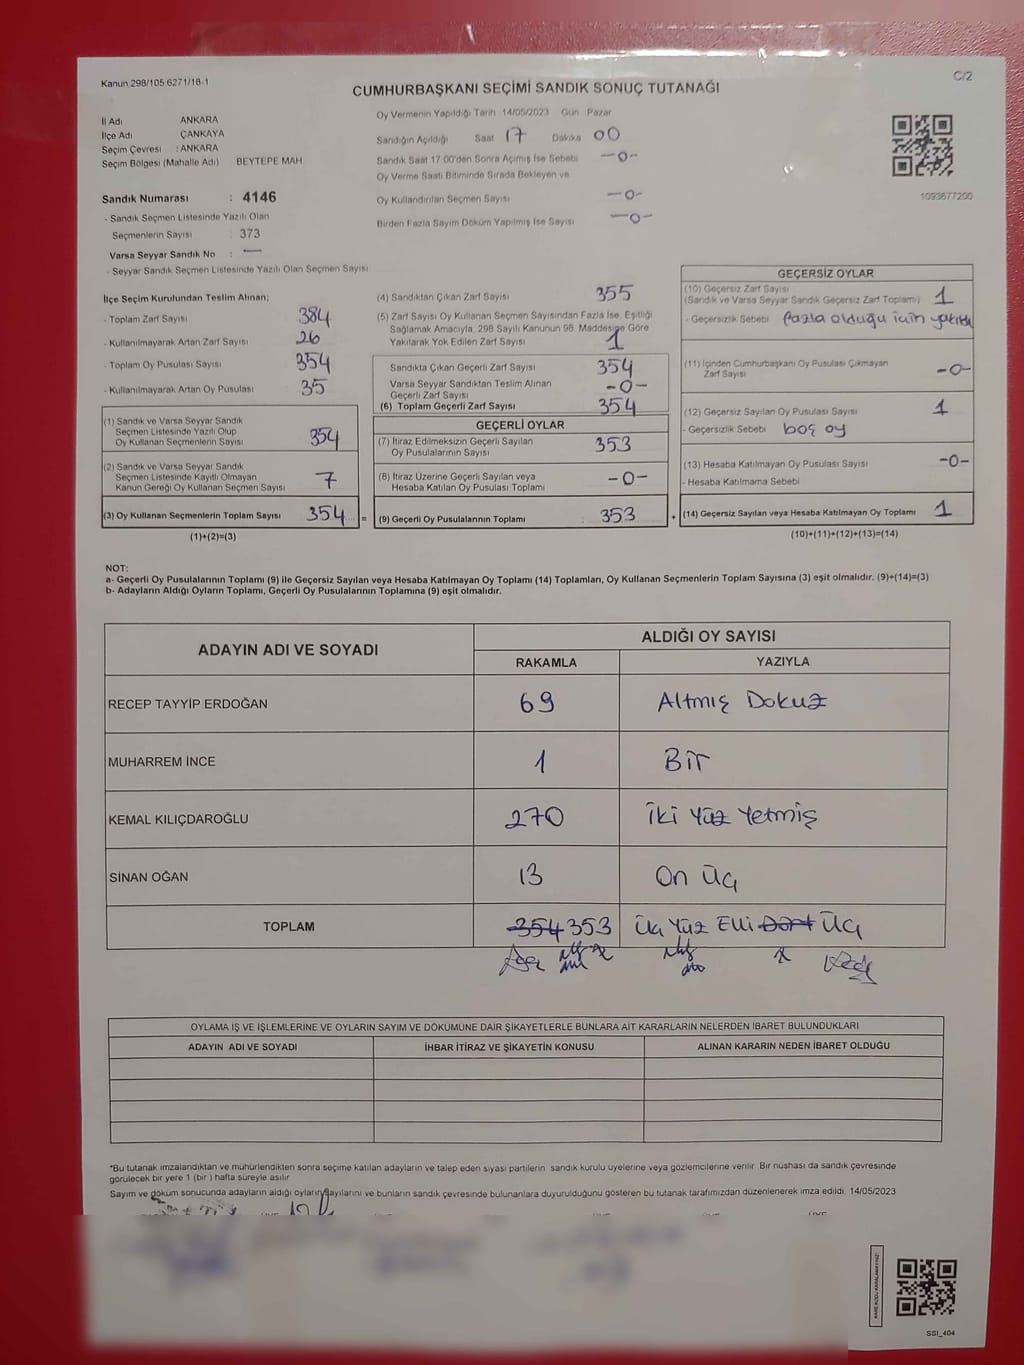 Kanun:298/105:6271/18-1
C/2
CUMHURBAŞKANI SEÇİMİ SANDIK SONUÇ TUTANAĞI
İl Adı ANKARA
İlçe Adı ÇANKAYA
Seçim Çevresi : ANKARA
Seçim Bölgesi (Mahalle Adı) BEYTEPE MAH.
Sandık Numarası : 4146
- Sandık Seçmen Listesinde Yazılı Olan
Seçmenlerin Sayısı : 373
Varsa Seyyar Sandık No : —
- Seyyar Sandık Seçmen Listesinde Yazılı Olan Seçmen Sayısı
Oy Vermenin Yapıldığı Tarih 14/05/2023 Gün Pazar
Sandığın Açıldığı Saat 17 Dakika 00
Sandık Saat 17:00'den Sonra Açılmış İse Sebebi —o—
Oy Verme Saati Bitiminde Sırada Bekleyen ve
Oy Kullandırılan Seçmen Sayısı —o—
Birden Fazla Sayım Döküm Yapılmış İse Sayısı —o—
1093677200
İlçe Seçim Kurulundan Teslim Alınan;
- Toplam Zarf Sayısı 384
- Kullanılmayarak Artan Zarf Sayısı 26
- Toplam Oy Pusulası Sayısı 354
- Kullanılmayarak Artan Oy Pusulası 35
(1) Sandık ve Varsa Seyyar Sandık
Seçmen Listesinde Yazılı Olup
Oy Kullanan Seçmenlerin Sayısı 354
(2) Sandık ve Varsa Seyyar Sandık
Seçmen Listesinde Kayıtlı Olmayan
Kanun Gereği Oy Kullanan Seçmen Sayısı 7
(3) Oy Kullanan Seçmenlerin Toplam Sayısı 354 =
(1)+(2)=(3)
(4) Sandıktan Çıkan Zarf Sayısı 355
(5) Zarf Sayısı Oy Kullanan Seçmen Sayısından Fazla İse, Eşitliği
Sağlamak Amacıyla, 298 Sayılı Kanunun 98. Maddesine Göre
Yakılarak Yok Edilen Zarf Sayısı 1
Sandıkta Çıkan Geçerli Zarf Sayısı 354
Varsa Seyyar Sandıktan Teslim Alınan
Geçerli Zarf Sayısı -0-
(6) Toplam Geçerli Zarf Sayısı 354
GEÇERLİ OYLAR
(7) İtiraz Edilmeksizin Geçerli Sayılan
Oy Pusulalarının Sayısı 353
(8) İtiraz Üzerine Geçerli Sayılan veya
Hesaba Katılan Oy Pusulası Toplamı -0-
(9) Geçerli Oy Pusulalarının Toplamı 353 +
GEÇERSİZ OYLAR
(10) Geçersiz Zarf Sayısı
(Sandık ve Varsa Seyyar Sandık Geçersiz Zarf Toplamı) 1
- Geçersizlik Sebebi fazla olduğu için yakıldı
(11) İçinden Cumhurbaşkanı Oy Pusulası Çıkmayan
Zarf Sayısı -0-
(12) Geçersiz Sayılan Oy Pusulası Sayısı 1
- Geçersizlik Sebebi boş oy
(13) Hesaba Katılmayan Oy Pusulası Sayısı -0-
- Hesaba Katılmama Sebebi
(14) Geçersiz Sayılan veya Hesaba Katılmayan Oy Toplamı 1
(10)+(11)+(12)+(13)=(14)
NOT:
a- Geçerli Oy Pusulalarının Toplamı (9) ile Geçersiz Sayılan veya Hesaba Katılmayan Oy Toplamı (14) Toplamları, Oy Kullanan Seçmenlerin Toplam Sayısına (3) eşit olmalıdır. (9)+(14)=(3)
b- Adayların Aldığı Oyların Toplamı, Geçerli Oy Pusulalarının Toplamına (9) eşit olmalıdır.
ADAYIN ADI VE SOYADI ALDIĞI OY SAYISI
RAKAMLA YAZIYLA
RECEP TAYYİP ERDOĞAN 69 Altmış Dokuz
MUHARREM İNCE 1 Bir
KEMAL KILIÇDAROĞLU 270 İki Yüz Yetmiş
SİNAN OĞAN 13 On Üç
TOPLAM 354 353 Üç Yüz Elli Dört Üç
OYLAMA İŞ VE İŞLEMLERİNE VE OYLARIN SAYIM VE DÖKÜMÜNE DAİR ŞİKAYETLERLE BUNLARA AİT KARARLARIN NELERDEN İBARET BULUNDUKLARI
ADAYIN ADI VE SOYADI İHBAR İTİRAZ VE ŞİKAYETİN KONUSU ALINAN KARARIN NEDEN İBARET OLDUĞU
*Bu tutanak imzalandıktan ve mühürlendikten sonra seçime katılan adayların ve talep eden siyasi partilerin sandık kurulu üyelerine veya gözlemcilerine verilir. Bir nüshası da sandık çevresinde
görülecek bir yere 1 (bir) hafta süreyle asılır
Sayım ve döküm sonucunda adayların aldığı oyların sayılarını ve bunların sandık çevresinde bulunanlara duyurulduğunu gösteren bu tutanak tarafımızdan düzenlenerek imza edildi. 14/05/2023
KARE KODU KARALAMAYINIZ!
SSI_404